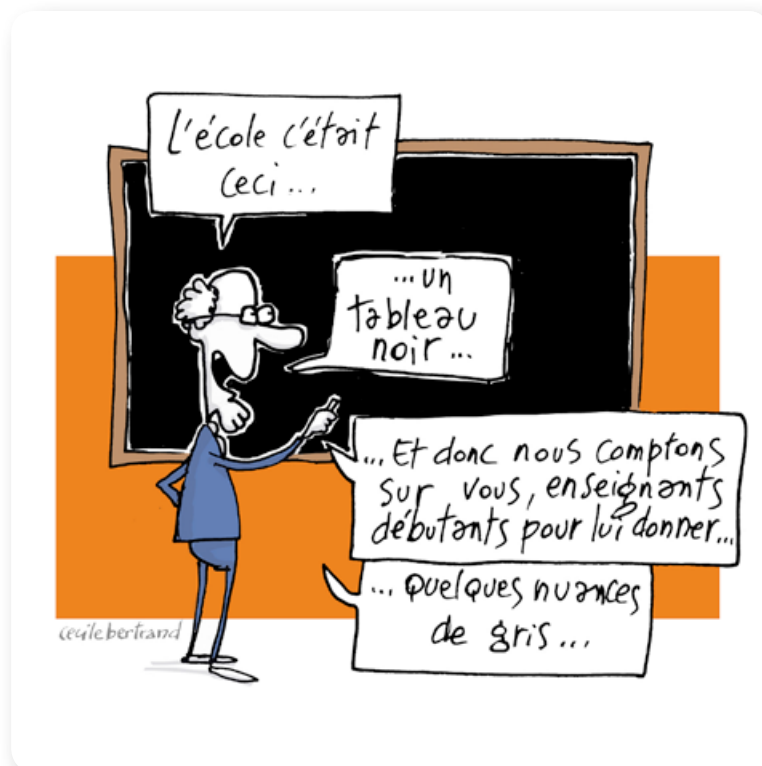 L'école c'était
ceci...
...un
tableau
noir...
...Et donc nous comptons
sur vous, enseignants
débutants pour lui donner...
...quelques nuances
de gris...
cecilebertrand